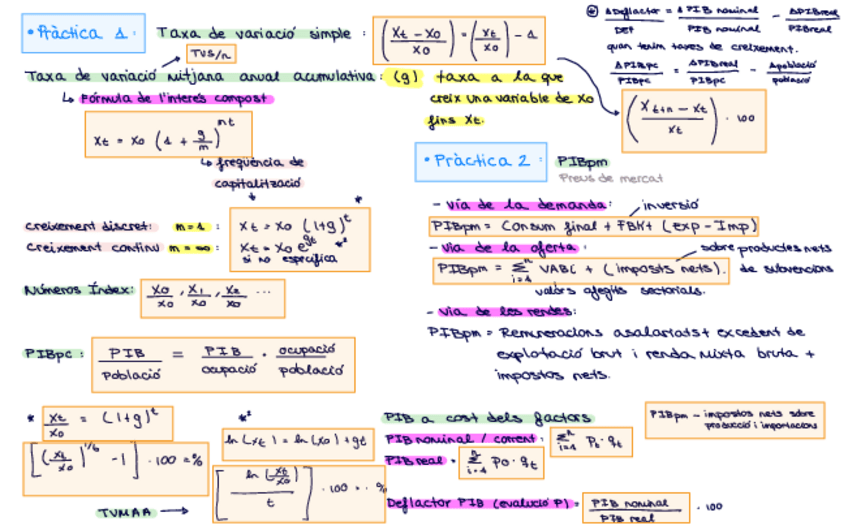 • Pràctica 1:
Taxa de variació simple: (Xt - X0 / X0) = (Xt / X0) - 1
TVS/n
Taxa de variació mitjana anual acumulativa: (g) taxa a la que
creix una variable de X0
fins Xt.
↳ Fórmula de l'interés compost
Xt = X0 (1 + g/m)^mt
↳ freqüència de
capitalització
creixement discret: m=1 : Xt = X0 (1+g)^t *
creixement continu m=∞ : Xt = X0 e^gt *²
si no especifica
Números Índex: X0/X0, X1/X0, X2/X0 ...
PIBpc: PIB/Població = PIB/ocupació · ocupació/població
* Xt/X0 = (1+g)^t
[(Xt/X0)^1/t - 1] · 100 = %
*² ln (Xt) = ln (X0) + gt
[ln (Xt/X0) / t] · 100 = · %
TVMAA →
⊛ ΔDeflactor/DEF = Δ PIB nominal/PIB nominal - ΔPIBreal/PIBreal
quan tenim taxes de creixement.
ΔPIBpc/PIBpc = ΔPIBreal/PIBpc - Δpoblació/població
(X t+n - Xt / Xt) · 100
• Pràctica 2: PIBpm
Preus de mercat
- via de la demanda: inversió
PIBpm = Consum final + FBK + (Exp - Imp)
- via de la oferta: sobre productes nets
PIBpm = Σ^n i=1 VABi + (imposts nets). de subvencions
valors afegits sectorials.
- via de les rendes:
PIBpm = Remuneracions asalariats + excedent de
explotació brut i renda mixta bruta +
impostos nets.
PIB a cost dels factors
PIBpm - impostos nets sobre
producció i importacions
PIB nominal / corrent: Σ^n i=1 Pt · qt
PIB real = Σ^n i=1 P0 · qt
Deflactor PIB (evolució P) = PIB nominal/PIB real · 100